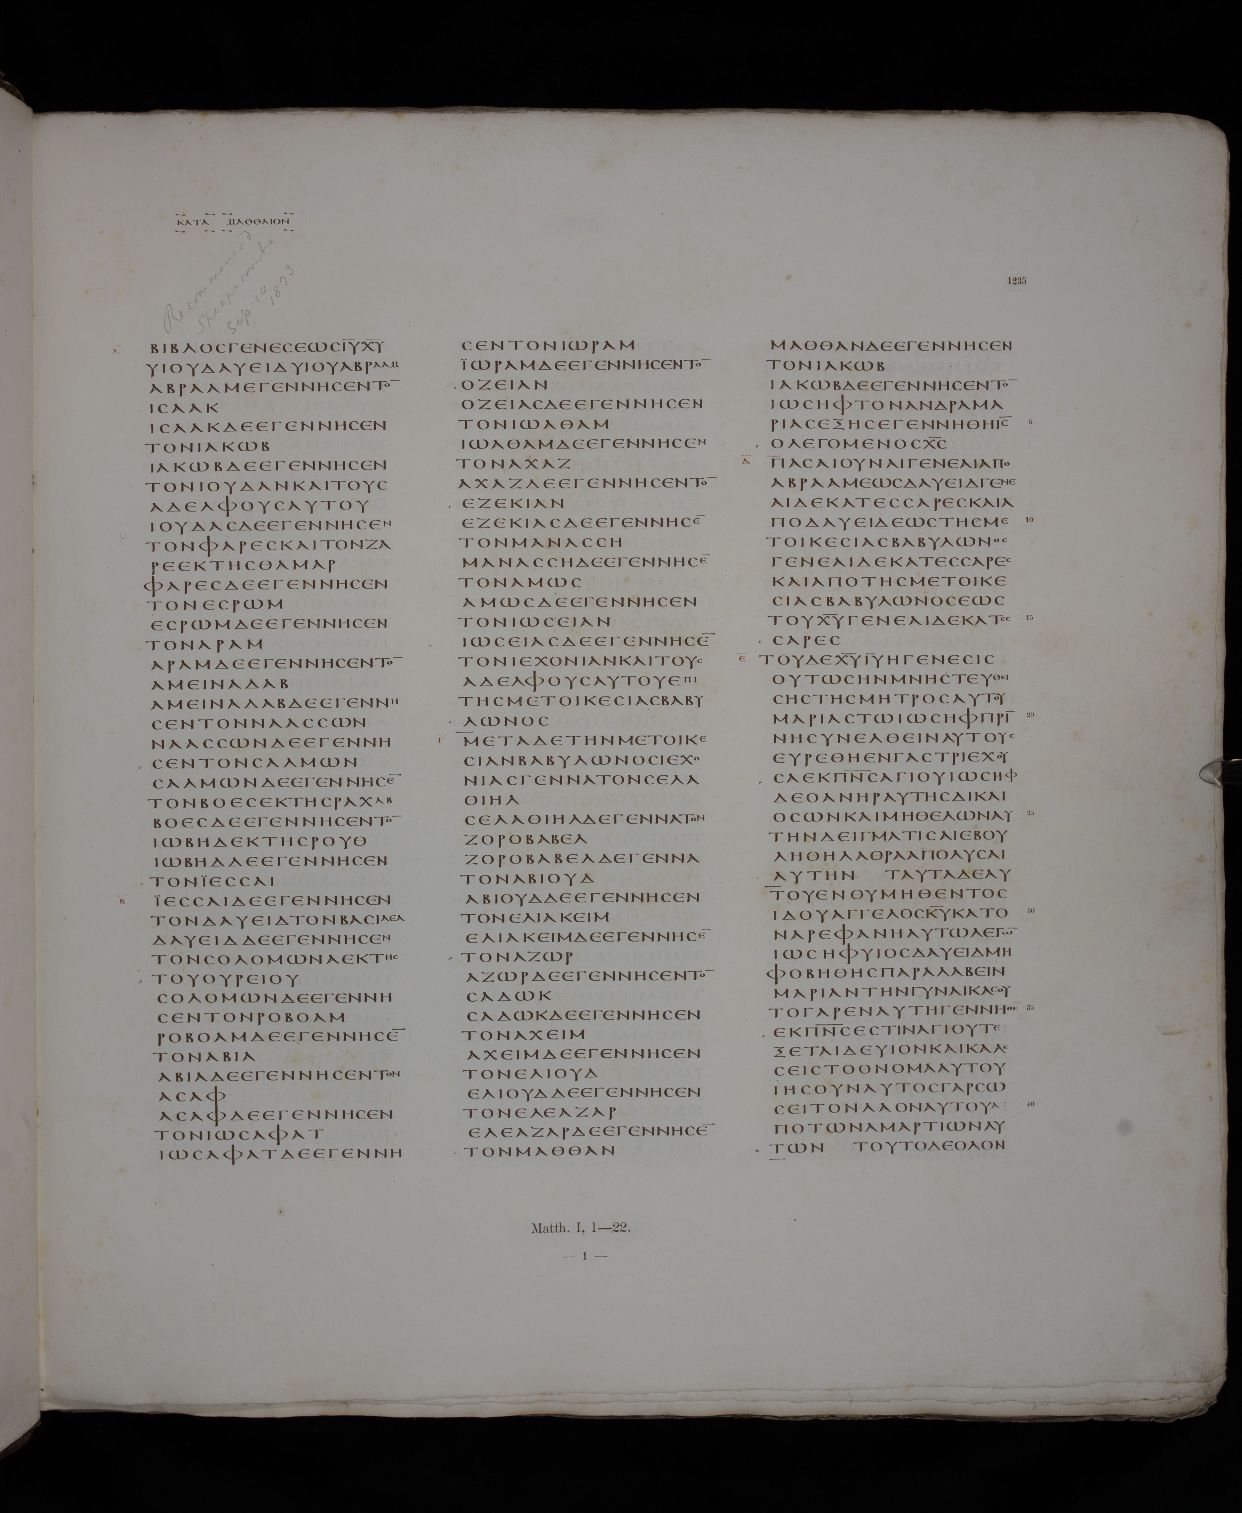 ΚΑΤΑ ΜΑΘΘΑΙΟΝ
Recommenced
Sep. 19
1873
1235
Α
ΒΙΒΛΟϹΓΕΝΕϹΕΩϹΙ̅Υ̅Χ̅Υ̅
ΥΙΟΥΔΑΥΕΙΔΥΙΟΥΑΒΡΑΑΜ
ΑΒΡΑΑΜΕΓΕΝΝΗϹΕΝΤΟ̅
ΙϹΑΑΚ
ΙϹΑΑΚΔΕΕΓΕΝΝΗϹΕΝ
ΤΟΝΙΑΚΩΒ
ΙΑΚΩΒΔΕΕΓΕΝΝΗϹΕΝ
ΤΟΝΙΟΥΔΑΝΚΑΙΤΟΥϹ
ΑΔΕΛΦΟΥϹΑΥΤΟΥ
ΙΟΥΔΑϹΔΕΕΓΕΝΝΗϹΕΝ
ΤΟΝΦΑΡΕϹΚΑΙΤΟΝΖΑ
ΡΕΕΚΤΗϹΘΑΜΑΡ
ΦΑΡΕϹΔΕΕΓΕΝΝΗϹΕΝ
ΤΟΝΕϹΡΩΜ
ΕϹΡΩΜΔΕΕΓΕΝΝΗϹΕΝ
ΤΟΝΑΡΑΜ
ΑΡΑΜΔΕΕΓΕΝΝΗϹΕΝΤΟ̅
ΑΜΕΙΝΑΔΑΒ
ΑΜΕΙΝΑΔΑΒΔΕΕΓΕΝΝΗ
ϹΕΝΤΟΝΝΑΑϹϹΩΝ
ΝΑΑϹϹΩΝΔΕΕΓΕΝΝΗ
ϹΕΝΤΟΝϹΑΛΜΩΝ
ϹΑΛΜΩΝΔΕΕΓΕΝΝΗϹΕ̅
ΤΟΝΒΟΕϹΕΚΤΗϹΡΑΧΑΒ
ΒΟΕϹΔΕΕΓΕΝΝΗϹΕΝΤΟ̅
ΙΩΒΗΔΕΚΤΗϹΡΟΥΘ
ΙΩΒΗΔΔΕΕΓΕΝΝΗϹΕΝ
ΤΟΝΪΕϹϹΑΙ
Β
ΪΕϹϹΑΙΔΕΕΓΕΝΝΗϹΕΝ
ΤΟΝΔΑΥΕΙΔΤΟΝΒΑϹΙΛΕΑ
ΔΑΥΕΙΔΔΕΕΓΕΝΝΗϹΕΝ
ΤΟΝϹΟΛΟΜΩΝΑΕΚΤΗϹ
ΤΟΥΟΥΡΕΙΟΥ
ϹΟΛΟΜΩΝΔΕΕΓΕΝΝΗ
ϹΕΝΤΟΝΡΟΒΟΑΜ
ΡΟΒΟΑΜΔΕΕΓΕΝΝΗϹΕ̅
ΤΟΝΑΒΙΑ
ΑΒΙΑΔΕΕΓΕΝΝΗϹΕΝΤΟΝ
ΑϹΑΦ
ΑϹΑΦΔΕΕΓΕΝΝΗϹΕΝ
ΤΟΝΙΩϹΑΦΑΤ
ΙΩϹΑΦΑΤΔΕΕΓΕΝΝΗ
ϹΕΝΤΟΝΙΩΡΑΜ
ΪΩΡΑΜΔΕΕΓΕΝΝΗϹΕΝΤΟ̅
ΟΖΕΙΑΝ
ΟΖΕΙΑϹΔΕΕΓΕΝΝΗϹΕΝ
ΤΟΝΙΩΑΘΑΜ
ΙΩΑΘΑΜΔΕΕΓΕΝΝΗϹΕΝ
ΤΟΝΑΧΑΖ
ΑΧΑΖΔΕΕΓΕΝΝΗϹΕΝΤΟ̅
ΕΖΕΚΙΑΝ
ΕΖΕΚΙΑϹΔΕΕΓΕΝΝΗϹΕ̅
ΤΟΝΜΑΝΑϹϹΗ
ΜΑΝΑϹϹΗΔΕΕΓΕΝΝΗϹΕ̅
ΤΟΝΑΜΩϹ
ΑΜΩϹΔΕΕΓΕΝΝΗϹΕΝ
ΤΟΝΙΩϹΕΙΑΝ
ΙΩϹΕΙΑϹΔΕΕΓΕΝΝΗϹΕ̅
ΤΟΝΙΕΧΟΝΙΑΝΚΑΙΤΟΥϹ
ΑΔΕΛΦΟΥϹΑΥΤΟΥΕΠΙ
ΤΗϹΜΕΤΟΙΚΕϹΙΑϹΒΑΒΥ
ΛΩΝΟϹ
Γ
ΜΕΤΑΔΕΤΗΝΜΕΤΟΙΚΕ
ϹΙΑΝΒΑΒΥΛΩΝΟϹΙΕΧΟ
ΝΙΑϹΓΕΝΝΑΤΟΝϹΕΛΑ
ΘΙΗΛ
ϹΕΛΑΘΙΗΛΔΕΓΕΝΝΑΤΟΝ
ΖΟΡΟΒΑΒΕΛ
ΖΟΡΟΒΑΒΕΛΔΕΓΕΝΝΑ
ΤΟΝΑΒΙΟΥΔ
ΑΒΙΟΥΔΔΕΕΓΕΝΝΗϹΕΝ
ΤΟΝΕΛΙΑΚΕΙΜ
ΕΛΙΑΚΕΙΜΔΕΕΓΕΝΝΗϹΕ̅
ΤΟΝΑΖΩΡ
ΑΖΩΡΔΕΕΓΕΝΝΗϹΕΝΤΟ̅
ϹΑΔΩΚ
ϹΑΔΩΚΔΕΕΓΕΝΝΗϹΕΝ
ΤΟΝΑΧΕΙΜ
ΑΧΕΙΜΔΕΕΓΕΝΝΗϹΕΝ
ΤΟΝΕΛΙΟΥΔ
ΕΛΙΟΥΔΔΕΕΓΕΝΝΗϹΕΝ
ΤΟΝΕΛΕΑΖΑΡ
ΕΛΕΑΖΑΡΔΕΕΓΕΝΝΗϹΕ̅
ΤΟΝΜΑΘΘΑΝ
ΜΑΘΘΑΝΔΕΕΓΕΝΝΗϹΕΝ
ΤΟΝΙΑΚΩΒ
ΙΑΚΩΒΔΕΕΓΕΝΝΗϹΕΝΤΟ̅
ΙΩϹΗΦΤΟΝΑΝΔΡΑΜΑ
ΡΙΑϹΕΞΗϹΕΓΕΝΝΗΘΗΙ̅Ϲ̅ 5
ΟΛΕΓΟΜΕΝΟϹΧ̅Ϲ̅
Δ
ΠΑϹΑΙΟΥΝΑΙΓΕΝΕΑΙΑΠΟ
ΑΒΡΑΑΜΕΩϹΔΑΥΕΙΔΓΕΝΕ
ΑΙΔΕΚΑΤΕϹϹΑΡΕϹΚΑΙΑ
ΠΟΔΑΥΕΙΔΕΩϹΤΗϹΜΕ 10
ΤΟΙΚΕϹΙΑϹΒΑΒΥΛΩΝΟϹ
ΓΕΝΕΑΙΔΕΚΑΤΕϹϹΑΡΕϹ
ΚΑΙΑΠΟΤΗϹΜΕΤΟΙΚΕ
ϹΙΑϹΒΑΒΥΛΩΝΟϹΕΩϹ
ΤΟΥΧ̅Υ̅ΓΕΝΕΑΙΔΕΚΑΤΕϹ 15
ϹΑΡΕϹ
Ε
ΤΟΥΔΕΧ̅Υ̅Ι̅Υ̅ΗΓΕΝΕϹΙϹ
ΟΥΤΩϹΗΝΜΝΗϹΤΕΥΘΕΙ
ϹΗϹΤΗϹΜΗΤΡΟϹΑΥΤΟΥ
ΜΑΡΙΑϹΤΩΙΩϹΗΦΠΡΙ̅ 20
ΝΗϹΥΝΕΛΘΕΙΝΑΥΤΟΥϹ
ΕΥΡΕΘΗΕΝΓΑϹΤΡΙΕΧΟΥ
ϹΑΕΚΠ̅Ν̅Ϲ̅ΑΓΙΟΥΙΩϹΗΦ
ΔΕΟΑΝΗΡΑΥΤΗϹΔΙΚΑΙ
ΟϹΩΝΚΑΙΜΗΘΕΛΩΝΑΥ 25
ΤΗΝΔΕΙΓΜΑΤΙϹΑΙΕΒΟΥ
ΛΗΘΗΛΑΘΡΑΑΠΟΛΥϹΑΙ
ΑΥΤΗΝ ΤΑΥΤΑΔΕΑΥ
ΤΟΥΕΝΟΥΜΗΘΕΝΤΟϹ
ΙΔΟΥΑΓΓΕΛΟϹΚ̅Υ̅ΚΑΤΟ 30
ΝΑΡΕΦΑΝΗΑΥΤΩΛΕΓΩ̅
ΙΩϹΗΦΥΙΟϹΔΑΥΕΙΔΜΗ
ΦΟΒΗΘΗϹΠΑΡΑΛΑΒΕΙΝ
ΜΑΡΙΑΝΤΗΝΓΥΝΑΙΚΑϹΟΥ
ΤΟΓΑΡΕΝΑΥΤΗΓΕΝΝΗΘΕ̅ 35
ΕΚΠ̅Ν̅Ϲ̅ΕϹΤΙΝΑΓΙΟΥΤΕ
ΞΕΤΑΙΔΕΥΙΟΝΚΑΙΚΑΛΕ
ϹΕΙϹΤΟΟΝΟΜΑΑΥΤΟΥ
ΙΗϹΟΥΝΑΥΤΟϹΓΑΡϹΩ
ϹΕΙΤΟΝΛΑΟΝΑΥΤΟΥΑ 40
ΠΟΤΩΝΑΜΑΡΤΙΩΝΑΥ
ΤΩΝ ΤΟΥΤΟΔΕΟΛΟΝ
Matth. I, 1—22.
— 1 —